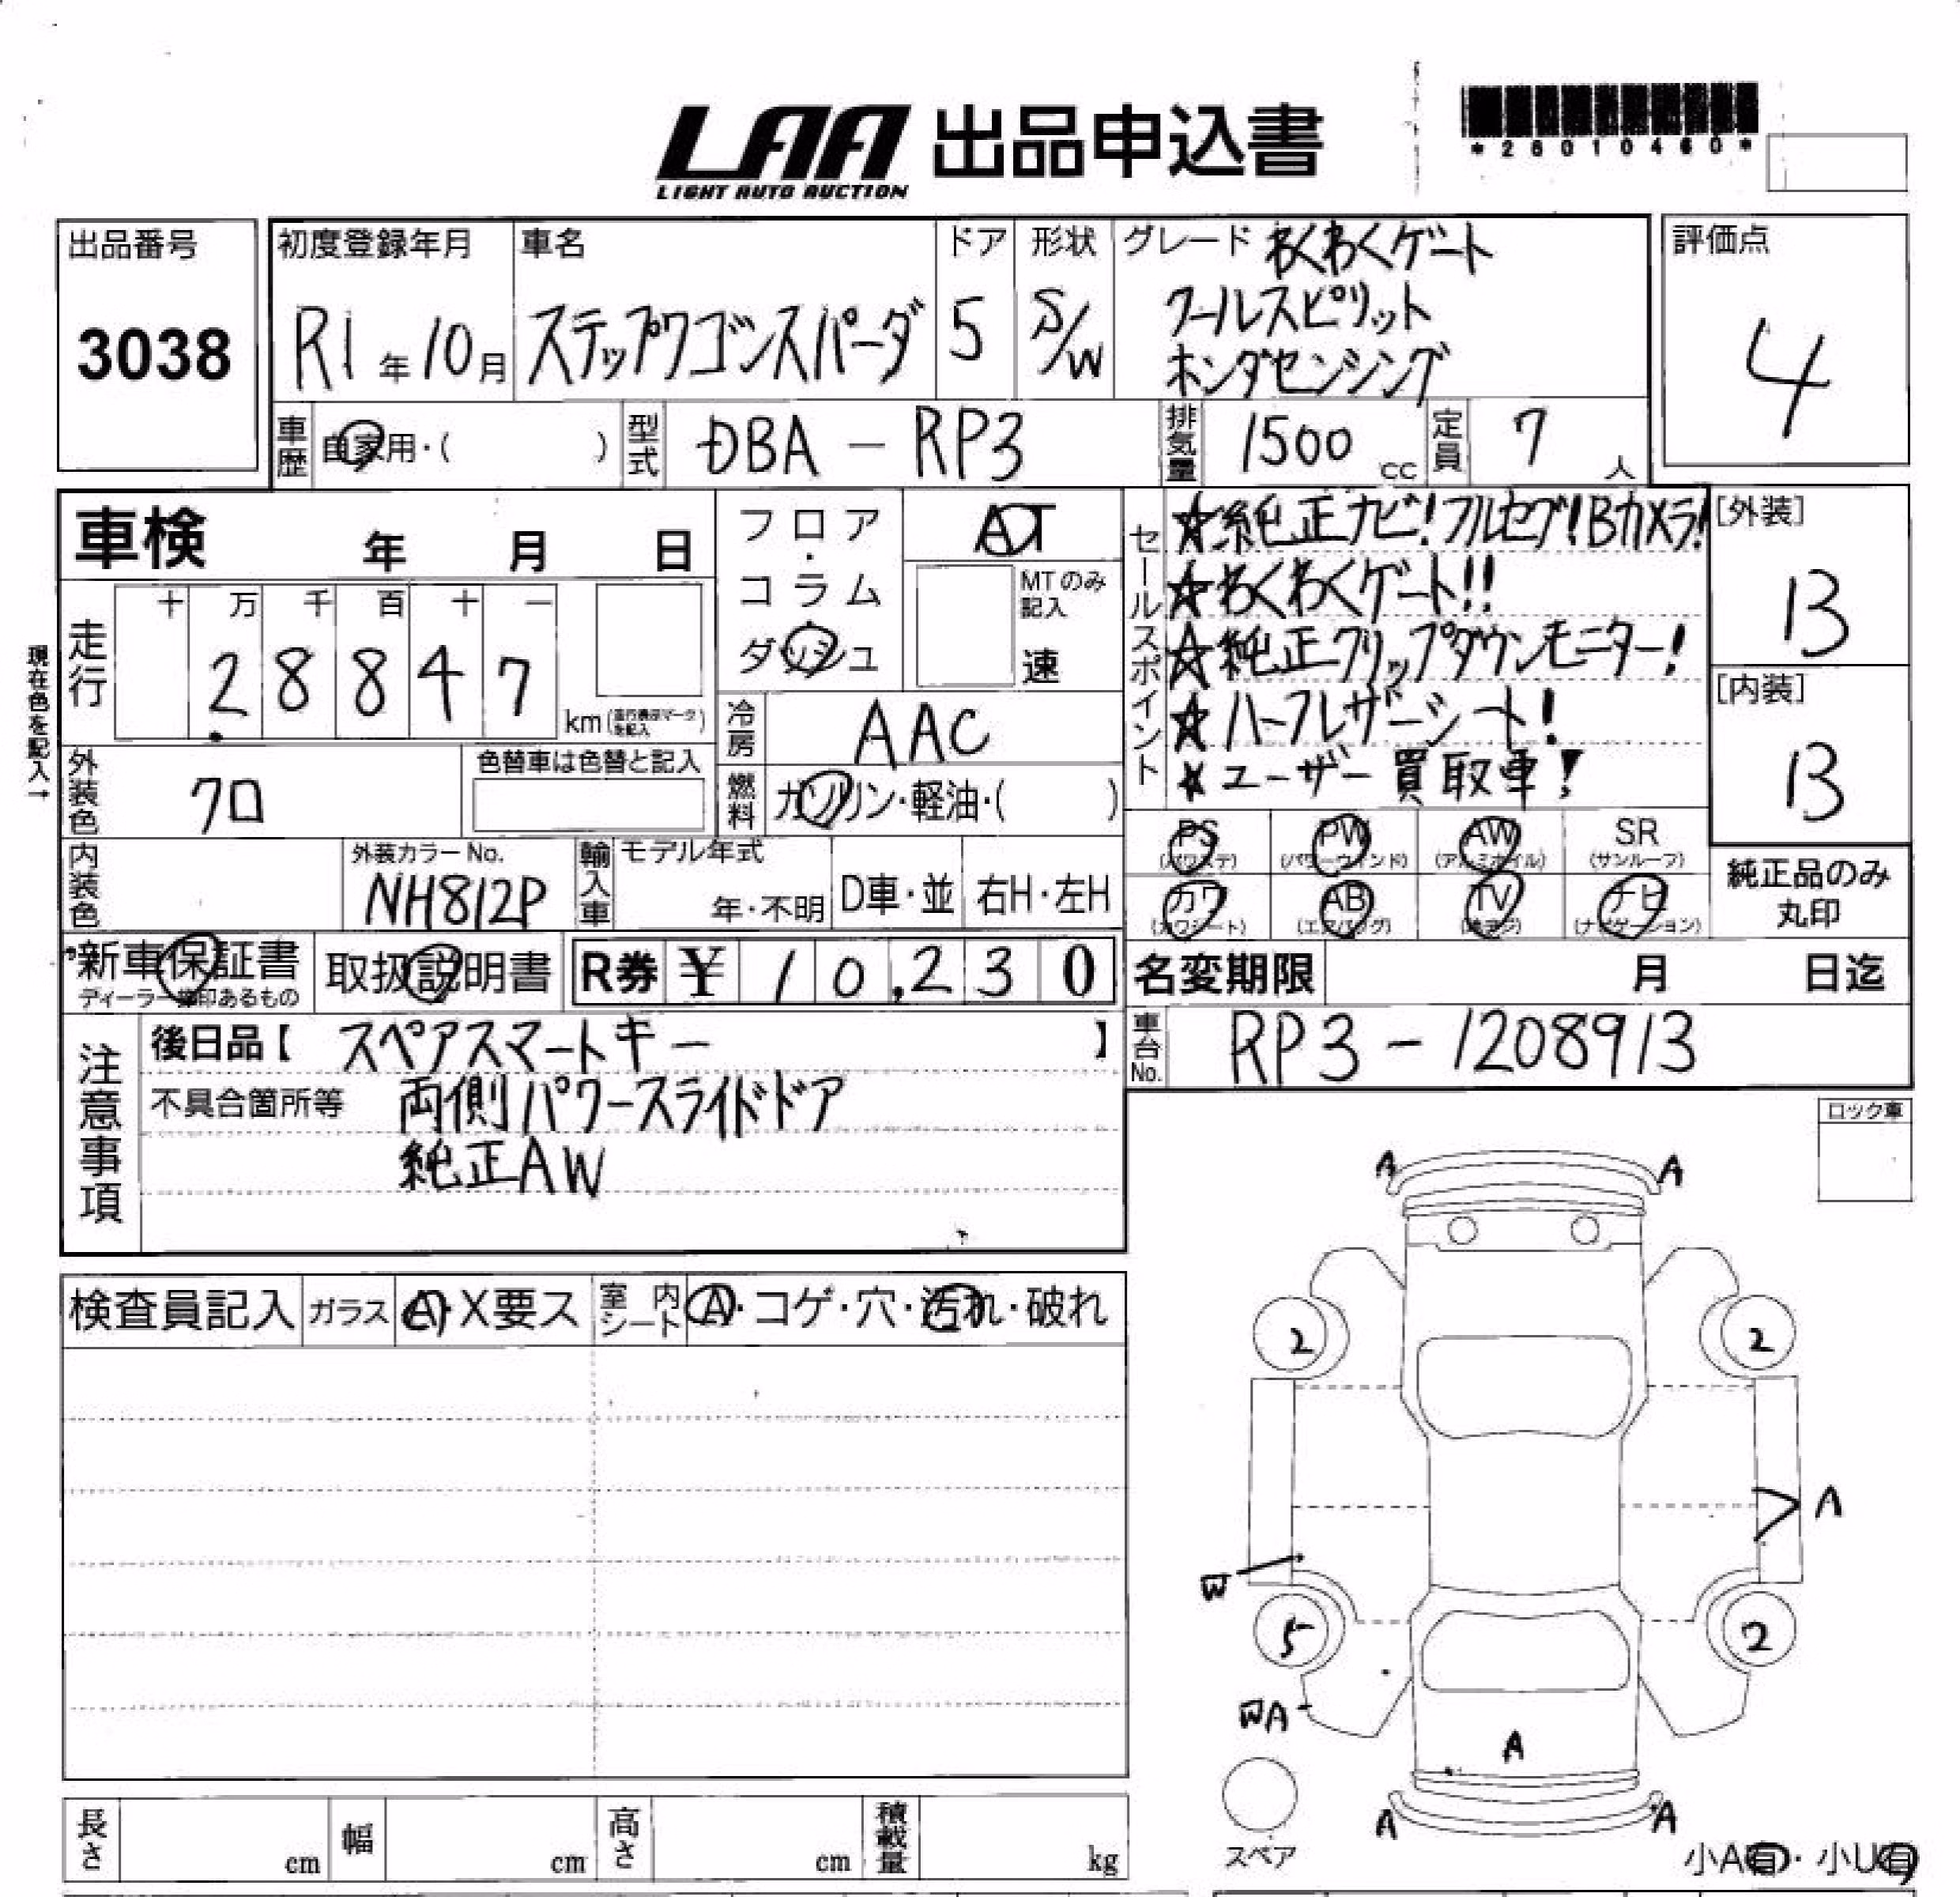 LAA 出品申込書
LIGHT AUTO AUCTION
*26010460*
出品番号
3038
初度登録年月
R1年10月
車名
ステップワゴンスパーダ
ドア
5
形状
S/W
グレード わくわくゲート
クールスピリット
ホンダセンシング
評価点
4
車歴 自家用・( )
型式 DBA-RP3
排気量 1500 cc
定員 7 人
車検 年 月 日
フロア・コラム・ダッシュ
AT
MTのみ記入
速
走行
十 万 千 百 十 一
2 8 8 4 7
km
現在色を記入→
冷房 AAC
燃料 ガソリン・軽油・( )
外装色 クロ
色替車は色替と記入
内装色
外装カラーNo.
NH812P
輸入車
モデル年式
年・不明
D車・並
右H・左H
セールスポイント
☆純正ナビ!フルセグ!Bカメラ!
☆わくわくゲート!!
☆純正フリップダウンモニター!
☆ハーフレザーシート!
☆ユーザー買取車!
[外装]
B
[内装]
B
PS (パワステ)
PW (パワーウィンド)
AW (アルミホイル)
SR (サンルーフ)
カワ (カワシート)
AB (エアバッグ)
TV
ナビ (ナビゲーション)
純正品のみ
丸印
新車保証書
取扱説明書
R券 ¥ 10,230
名変期限 月 日迄
車台No. RP3-1208913
注意事項
後日品【 スペアスマートキー 】
不具合箇所等 両側パワースライドドア
純正AW
ロック車
検査員記入
ガラス A・X要ス
室内シート A・コゲ・穴・汚れ・破れ
A A
2 2
A
W
5 2
WA
A
A A
スペア
小A有・小U有
長さ cm
幅 cm
高さ cm
積載量 kg